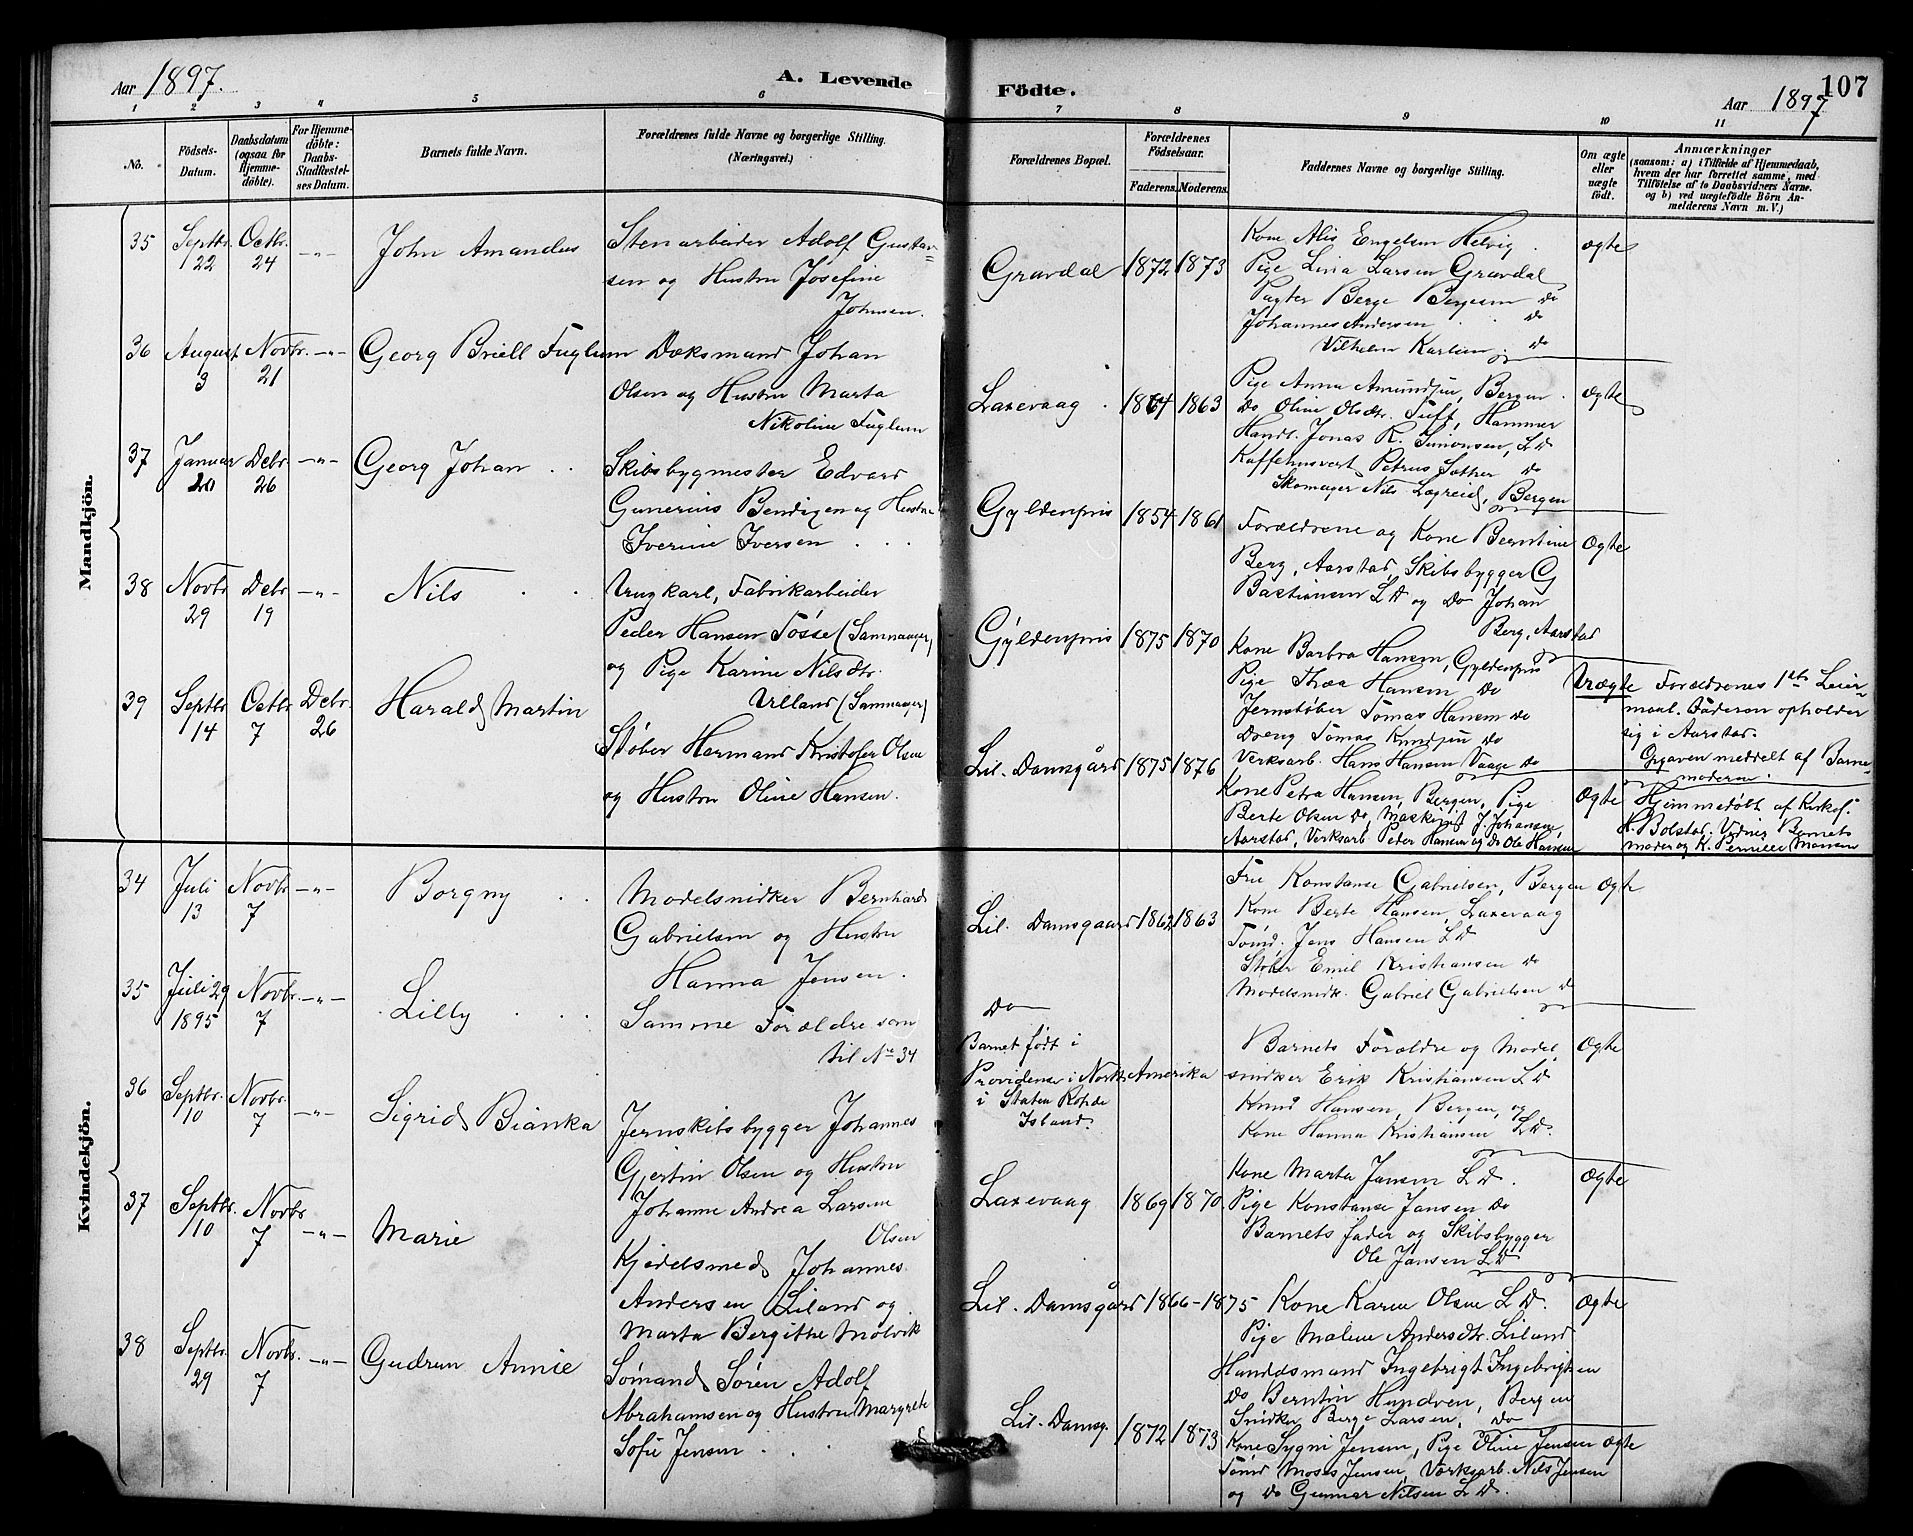 Aar 1897.
A. Levende
Födte.
107
Aar 1897
1 2 3 4 5 6 7 8 9 10 11
No.
Födsels-Datum.
Daabsdatum (ogsaa for Hjemme-döbte).
For Hjemme-döbte: Daabs-Stadfestel-ses Datum.
Barnets fulde Navn.
Forældrenes fulde Navne og borgerlige Stilling. (Næringsvei.)
Forældrenes Bopæl.
Forældrenes Födselsaar.
Faderens. Moderens.
Faddernes Navne og borgerlige Stilling.
Om ægte eller uægte födt.
Anmærkninger
(saasom: a) i Tilfælde af Hjemmedaab, hvem der har forrettet samme, med Tilföielse af to Daabsvidners Navne. og b) ved uægtefödte Börn An-melderens Navn m. V.)
Mandkjön.
35 Septbr. 22 Octbr. 24 -"- John Amandus
Stenarbeider Adolf Gustav=
sen og Hustru Josefine
Johnsen.
Gravdal 1872 1873
Kone Alis Engelsen Helvig
Pige Lina Larsen Gravdal
Pagter Berge Bergesen Do
Johannes Andersen Do
Vilhelm Karlsen Do
Ægte
36 August 3 Novbr. 21 -"- Georg Briell Fuglum
Dæksmand Johan
Olsen og Hustru Marta
Nikoline Fuglum
Laxevaag 1864 1863
Pige Anna Amundsen, Bergen
Do Oline Olsdtr. Tuft, Hammer
Handl. Jonas R. Simonsen, LD
Kaffehusvert Petrus Sæther Do
Skomager Nils Lægreid, Bergen
Ægte
37 Januar 20 Debr. 26 -"- Georg Johan
Skibsbygmester Edvard
Gunerius Bendixen og Hustru
Iverine Iversen
Gyldenpris 1854 1861
Forældrene og Kone Berntine
Berg, Aarstad, Skibsbygger G
Bastiansen LD og Do Johan
Berg, Aarstad
Ægte
38 Novbr. 29 Debr. 19 -"- Nils
Ungkarl, Fabrikarbeider
Peder Hansen Tøsse (Samnanger)
og Pige Karine Nilsdtr.
Ulland (Samnanger)
Gyldenpris 1875 1870
Kone Barbra Hansen, Gyldenpris
Pige Thea Hansen Do
Jernstøber Tomas Hansen Do
Dreng Tomas Knudsen Do
Verksarb. Hans Hansen Vaage Do
Uægte
Forældrenes 1ste Leier-
maal. Faderen opholder
sig i Aarstad.
Opgaven meddelt af Barne-
moderen.
39 Septbr. 14 Octbr. 7 Debr. 26 Harald Martin
Støber Hermand Kristofer Olsen
og Hustru Oline Hansen.
Lil. Damsgård 1875 1876
Kone Petra Hansen, Bergen, Pige
Berte Olsen Do, Maskinist J Johansen,
Aarstad, Verksarb Peder Hansen og Do Ole Hansen
Ægte
Hjemmedøbt af Kirkes.
H. Bolstad. Vidner Barnets
moder og K. Pernille Monsen
Kvindekjön.
34 Juli 13 Novbr. 7 -"- Borgny
Modelsnidker Bernhard
Gabrielsen og Hustru
Hanna Jensen.
Lil. Damsgaard 1862 1863
Fru Konstanse Gabrielsen, Bergen
Kone Berte Hansen, Laxevaag
Tømd. Jens Hansen LD
Støber Emil Kristiansen Do
Modelsnidk. Gabriel Gabrielsen Do
Ægte
35 Juli 29 1895 Novbr. 7 -"- Lilly
Samme Forældre som
til No 34
Do
Barnet født i
Providense i North Amerika
i Staten Rohde
Island.
Barnets Forældre og Model
snidker Erik Kristiansen LD
Knud Hansen, Bergen, og
Kone Hanna Kristiansen LD.
Ægte
36 Septbr. 10 Novbr. 7 -"- Sigrid Bianka
Jernskibsbygger Johannes
Gjertin Olsen og Hustru
Johanne Andrea Larsen
Olsen
Laxevaag 1869 1870
Kone Marta Jansen LD.
Pige Konstanse Jansen Do
Barnets fader og Skibsbygger
Ole Jansen LD
Ægte
37 Septbr. 10 Novbr 7 -"- Marie
Kjedelsmed Johannes
Andersen Liland og
Marta Bergithe Molvik
Lil. Damsgård 1866-1875
Kone Karen Olsen LD.
Pige Malene Andersdtr. Liland
Handdsmand Ingebrigt Ingebrigtsen
Do Berntin Hundven, Bergen
Snidker Berge Larsen, Do
Ægte
38 Septbr. 29 Novbr. 7 -"- Gudrun Annie
Sømand Søren Adolf
Abrahamsen og Hustru Margrete
Sofie Jensen
Lil. Damsg. 1872 1873
Kone Sygni Jensen, Pige Oline Jensen
Tømd Moses Jensen, Værksarb. Nils Jensen
og Do Gunnar Nilsen LD.
Ægte